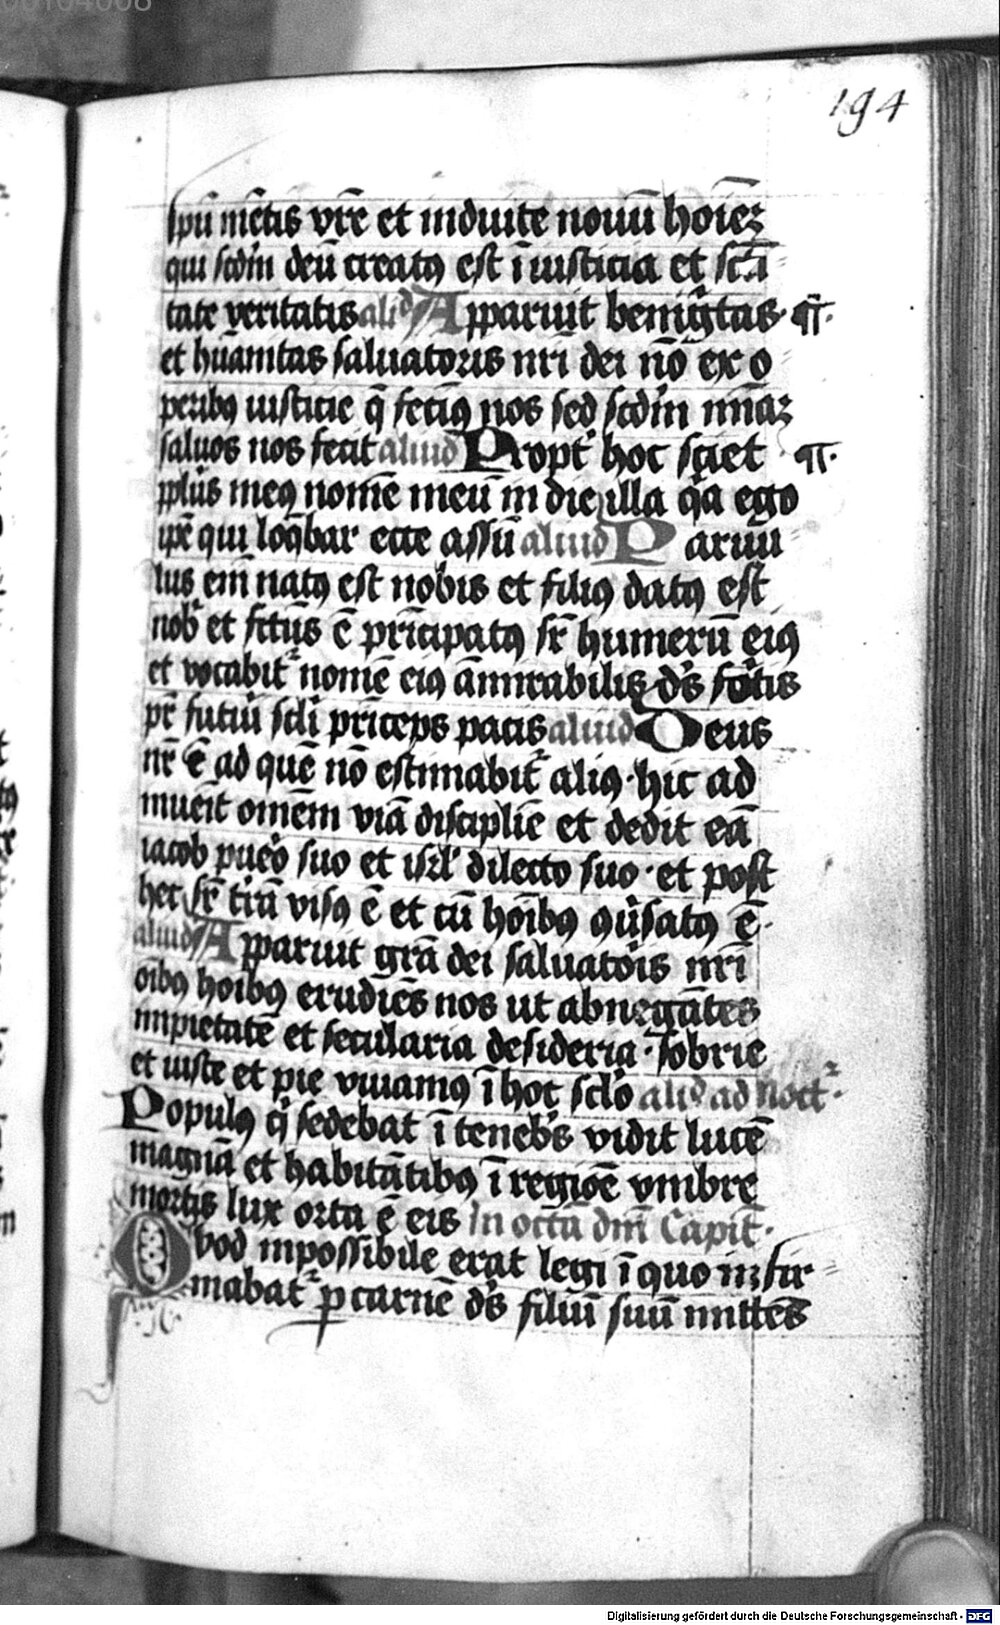 194
spū mētis vr̄e et induite nouū hoīez
qui scdm̄ deū creatꝯ est ī iusticia et scā
tate veritatis alid Apparuit benigͥtas· ¶·
et hūanitas saluatoris nr̄i dei nō ex o
peribꝯ iusticie q̄ fecimꝯ nos sed scdm̄ miāz
saluos nos fecit aliud Propt' hoc sciet ¶·
pplūs meꝯ nomē meū in die illa q̄a ego
ip̄e qui loq̄bar ecce assū aliud Paruu
lus em̄ natꝯ est nobis et filiꝯ datꝯ est
nob' et fctūs ē prīcipatꝯ sr̄ humerū eiꝯ
et vocabit' nomē eiꝯ āmirabilis ds̄ fortis
pr̄ futuri scl̄i prīceps pacis aliud Deus
nr̄ ē ad quē nō estimabit' aliꝯ· hic ad
inueīt omēm viā discipliē et dedit eā
iacob puero suo et isrl' dilecto suo· et post
hec sr̄ tr̄ā visꝯ ē et cū hoībꝯ ꝯūsatꝯ ē·
aliud Apparuit gr̄a dei saluatoris nr̄i
oībꝯ hoībꝯ erudiēs nos ut abnegātes
impietatē et secularia desideria· sobrie
et iuste et pie viuamꝯ ī hoc sclo alid ad noct'·
Populꝯ qͥ sedebat ī teneb's vidit lucē
magnā et habitātibꝯ ī regiōe vmbre
mortis lux orta ē eis In octā dn̄i Capit̄·
Quod inpossibile erat legi ī quo infir
mabat' p carnē ds̄ filiū suū mittēs
Digitalisierung gefördert durch die Deutsche Forschungsgemeinschaft - DFG